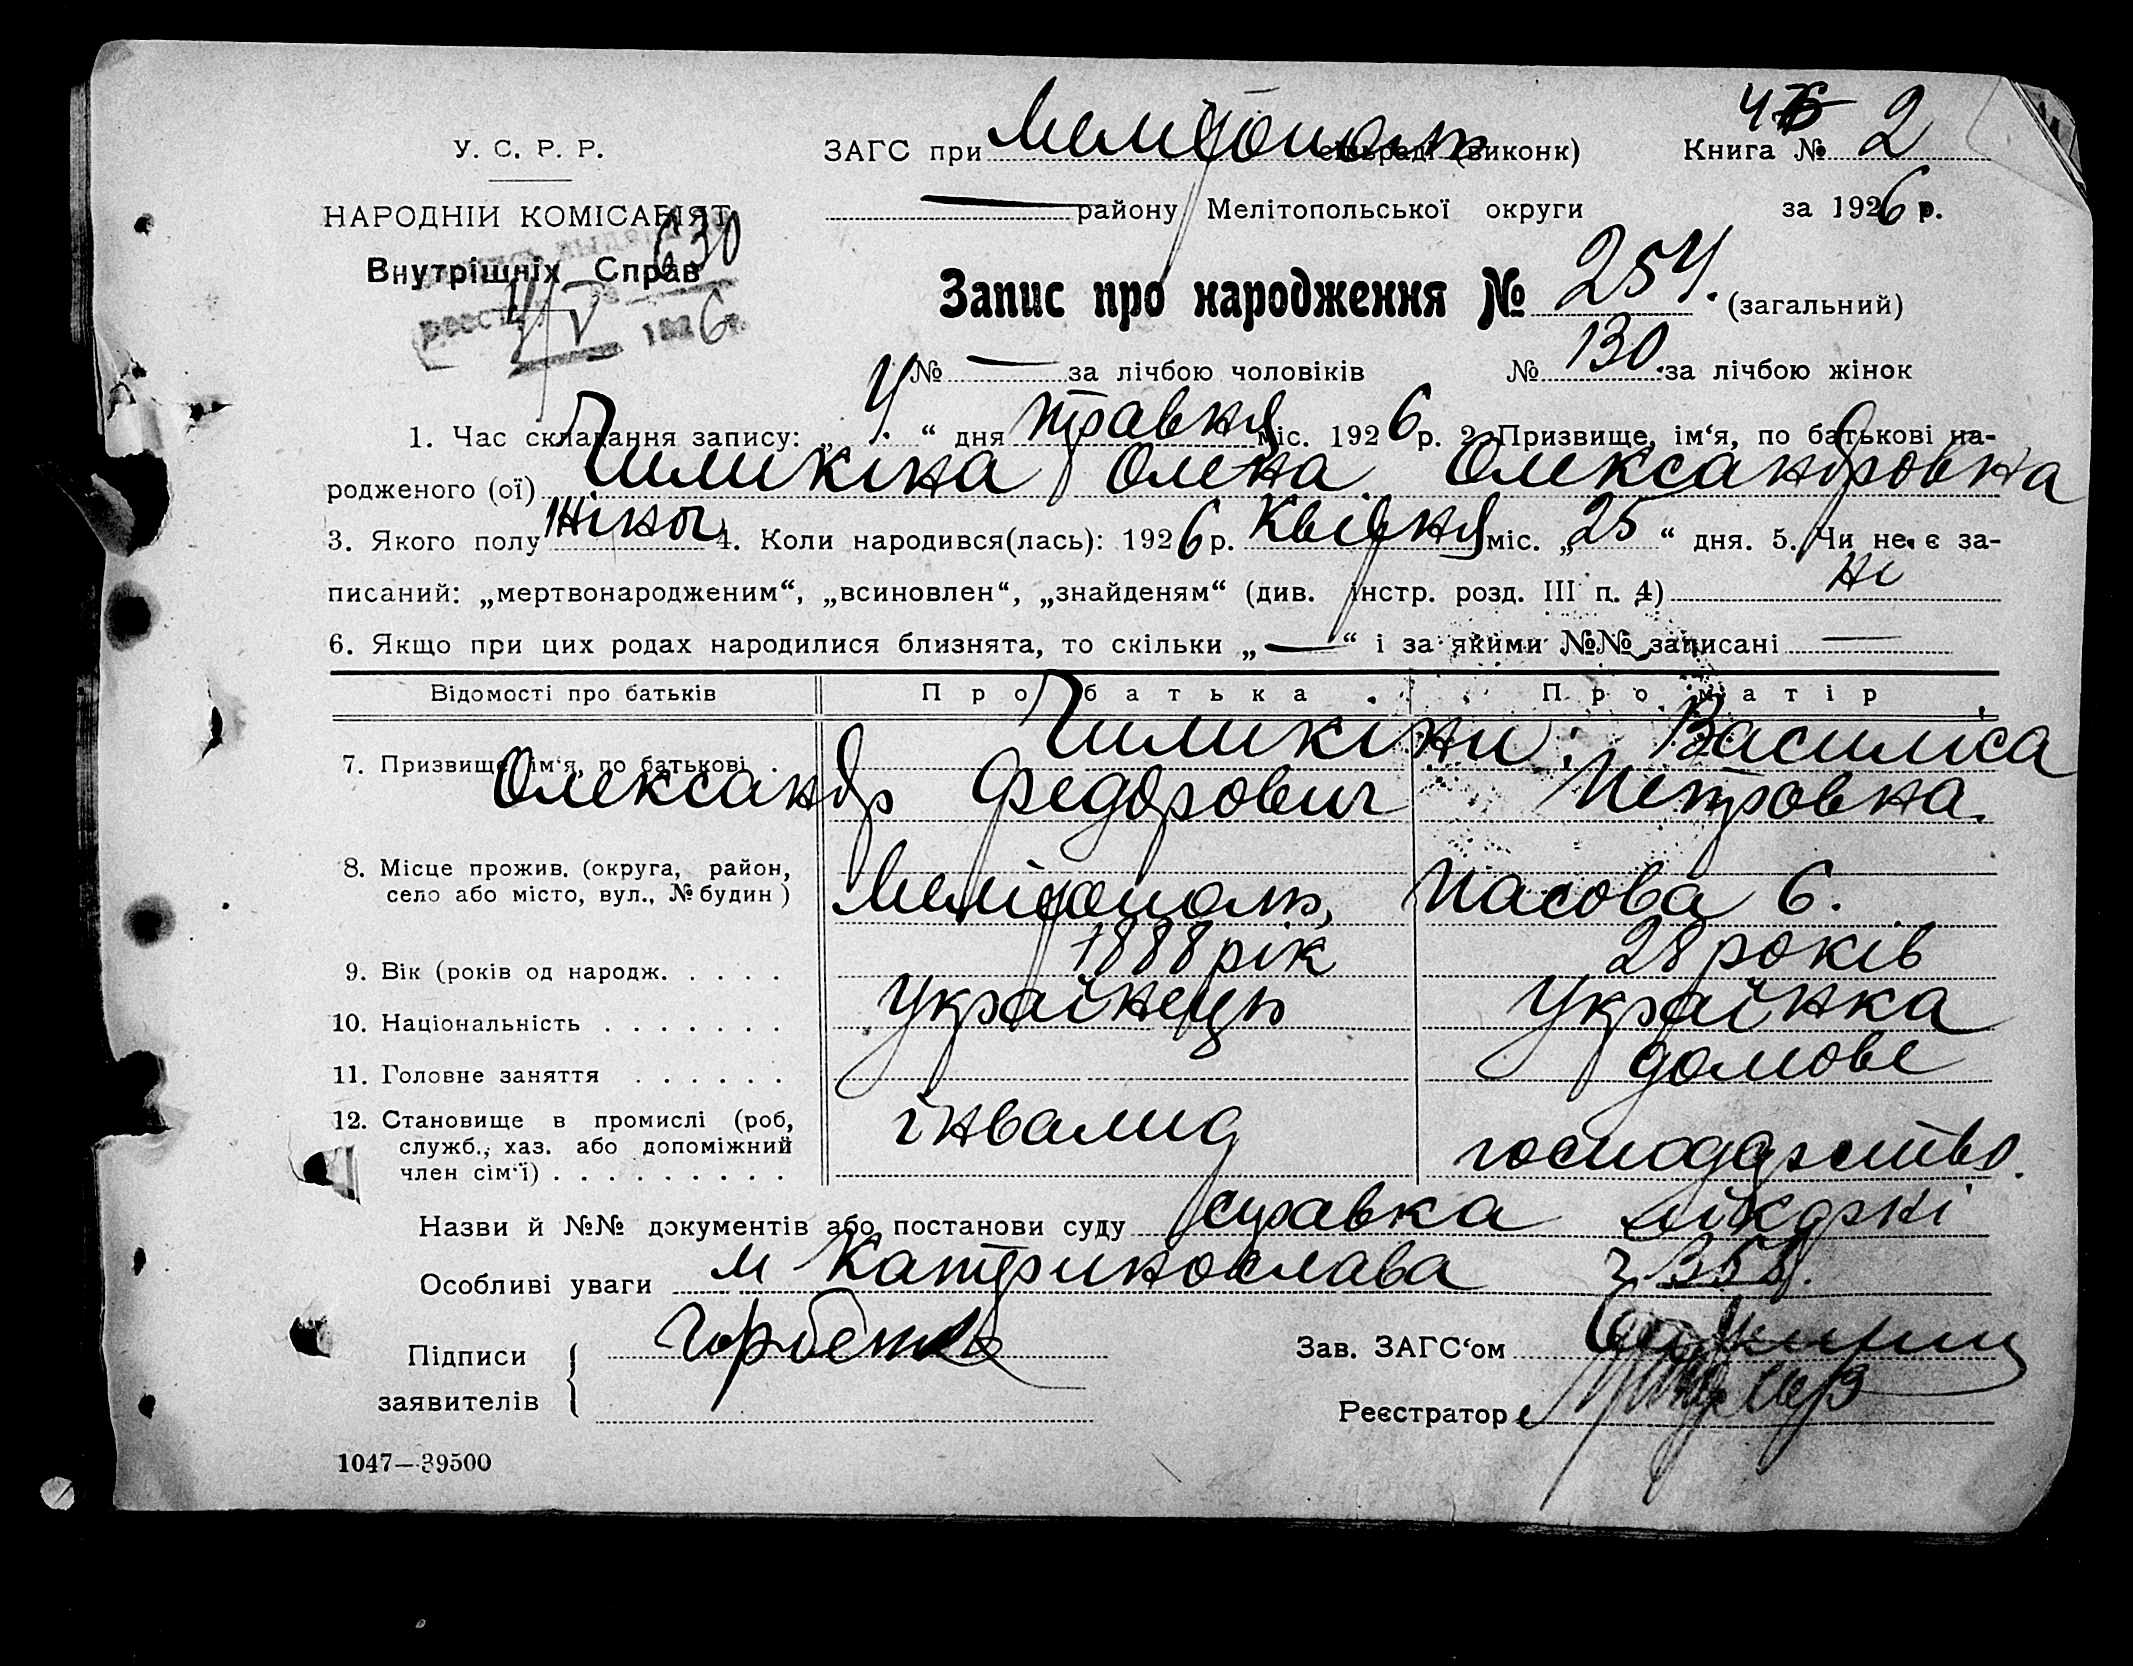 У. С. Р. Р.
НАРОДНІЙ КОМІСАРІЯТ
Внутрішніх Справ
630
4/V 1926 р.
ЗАГС при Мелітополь сільраді (виконк) Книга № 2
району Мелітопольської округи за 1926 р.
Запис про народження № 254. (загальний)
№ — за лічбою чоловіків № 130. за лічбою жінок
1. Час складання запису: „4.“ дня травня міс. 1926 р. 2. Призвище, ім‘я, по батькові на-
родженого (ої) Чиликіна Олена Олександровна
3. Якого полу жіноч 4. Коли народився(лась): 1926 р. Квівня міс. „25“ дня. 5. Чи не є за-
писаний: „мертвонародженим“, „всиновлен“, „знайденям“ (див. інстр. розд. III п. 4) ні
6. Якщо при цих родах народилися близнята, то скільки „—“ і за якими №№ записані —
Відомості про батьків Про батька Про матір
7. Призвище, ім‘я, по батькові . Чиликіни: Василіса
Олександр Федорович Петровна
8. Місце прожив. (округа, район,
село або місто, вул., № будин) Мелітополь, Пасова 6.
9. Вік (років од народж. . . . . 1888 рік 28 років
10. Національність . . . . . . . Українець Українка
11. Головне заняття . . . . . . домове
12. Становище в промислі (роб,
служб., хаз. або допоміжний
член сім‘ї) . . . . . . . . . інвалид господарство.
Назви й №№ документів або постанови суду справка
Особливі уваги м Катеринослава
Підписи
заявителів
Горбенко
Зав. ЗАГС‘ом
Реєстратор
1047—39500